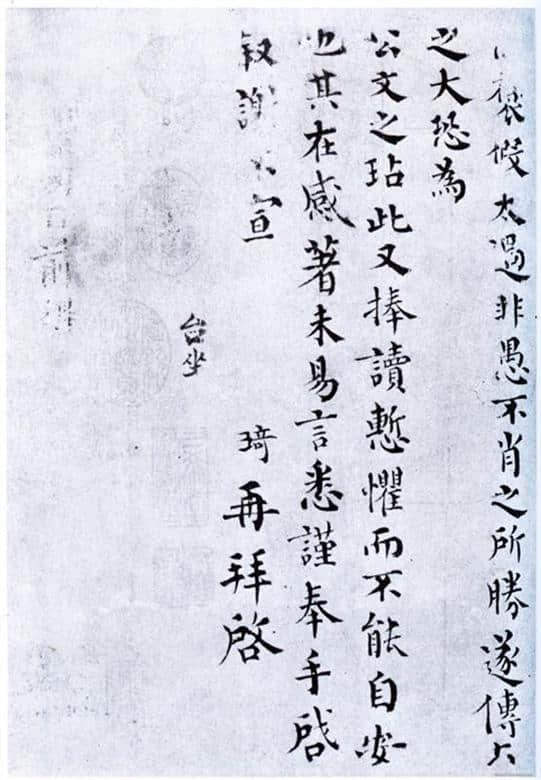 褒假太過非愚不肖之所勝遂傳
之大恐為
公文之玷此又捧讀慙懼而不能自安
也其在感著未易言悉謹奉手啓
叙謝不宣 琦再拜啓
台坐